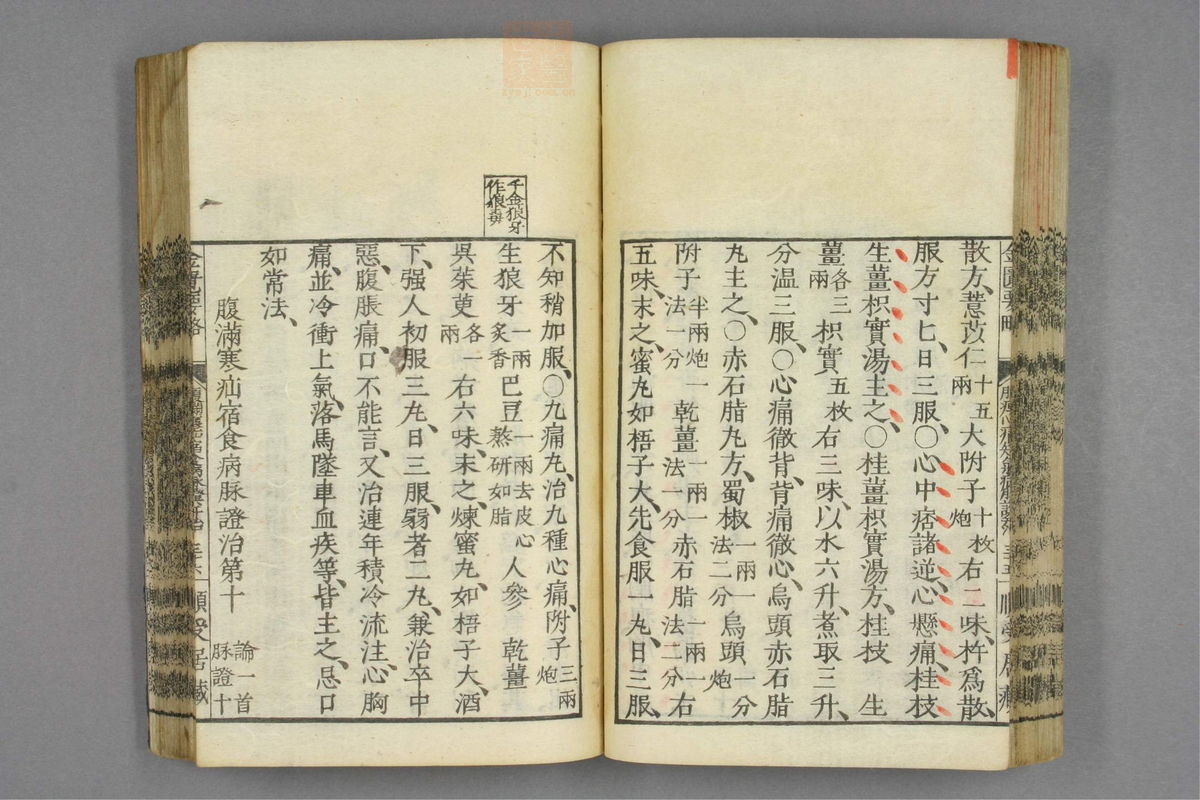 散方、薏苡仁十五兩大附子十枚炮右二味、杵爲散、
服方寸匕、日三服、〇心中痞諸逆、心懸痛、桂枝
生薑枳實湯主之、〇桂薑枳實湯方、桂枝 生
薑各三兩枳實五枚右三味、以水六升、煮取三升、
分温三服、〇心痛徹背、背痛徹心、烏頭赤石脂
丸主之、〇赤石脂丸方、蜀椒一兩一法二分烏頭一分炮
附子半兩炮一法一分乾薑一兩一法一分赤石脂一兩一法二分右
五味、末之、蜜丸如梧子大、先食服一丸、日三服、
千金狼牙作狼毒
不知稍加服、〇九痛丸、治九種心痛、附子三兩炮
生狼牙一兩炙香巴豆一兩去皮心熬研如脂人參 乾薑
吳茱萸各一兩右六味、末之、煉蜜丸、如梧子大、酒
下、强人初服三丸、日三服、弱者二丸、兼治卒中
惡、腹脹痛、口不能言、又治連年積冷流注、心胸
痛、並冷衝上氣、落馬墜車血疾等、皆主之、忌口
如常法、
腹滿寒疝宿食病脉證治第十論一首脉證十
金匱要略